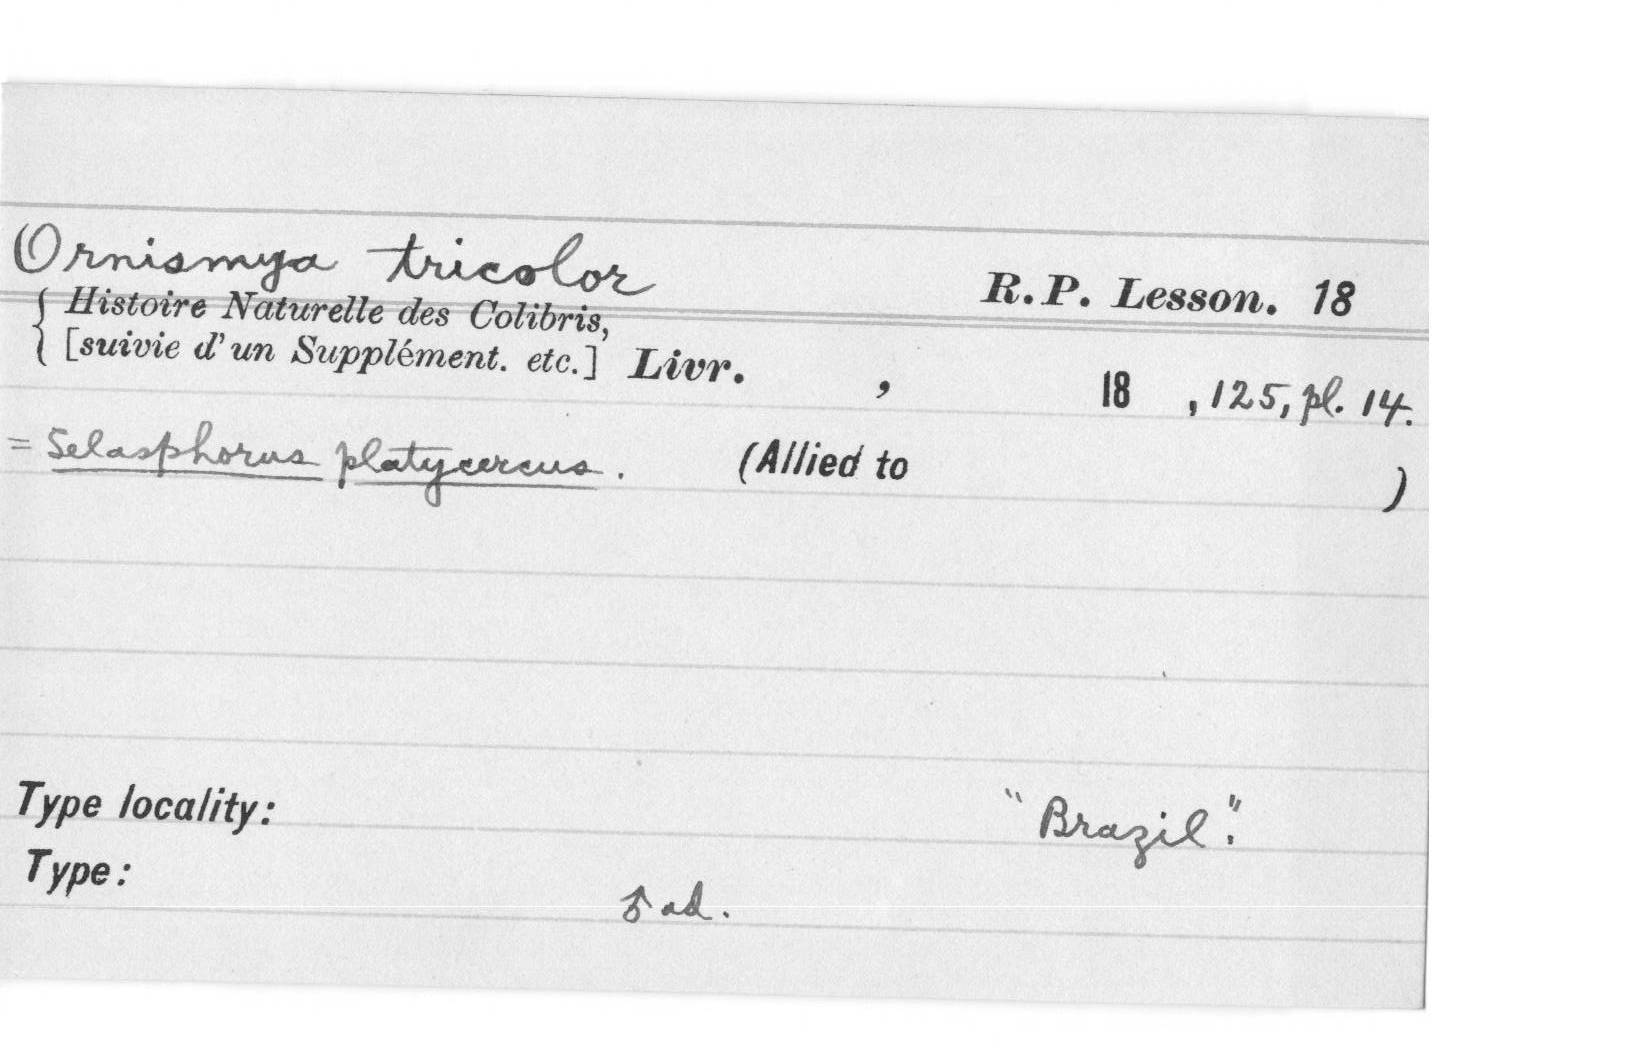 Ornismya tricolor R.P. Lesson. 18
{ Histoire Naturelle des Colibris,
[suivie d'un Supplément. etc.] Livr. , 18 , 125, pl. 14.
= Selasphorus platycercus. (Allied to )
Type locality: "Brazil".
Type: ♂ ad.